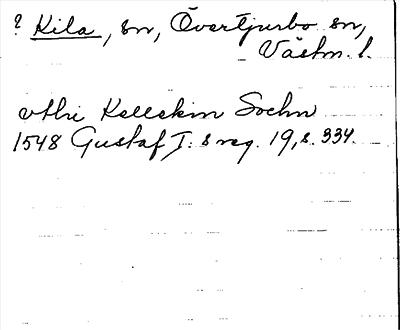 ? Kila, sn, Övertjurbo sn,
Västm. l.
vthi Kellekim Sochn
1548 Gustaf I: s reg. 19, s. 334.